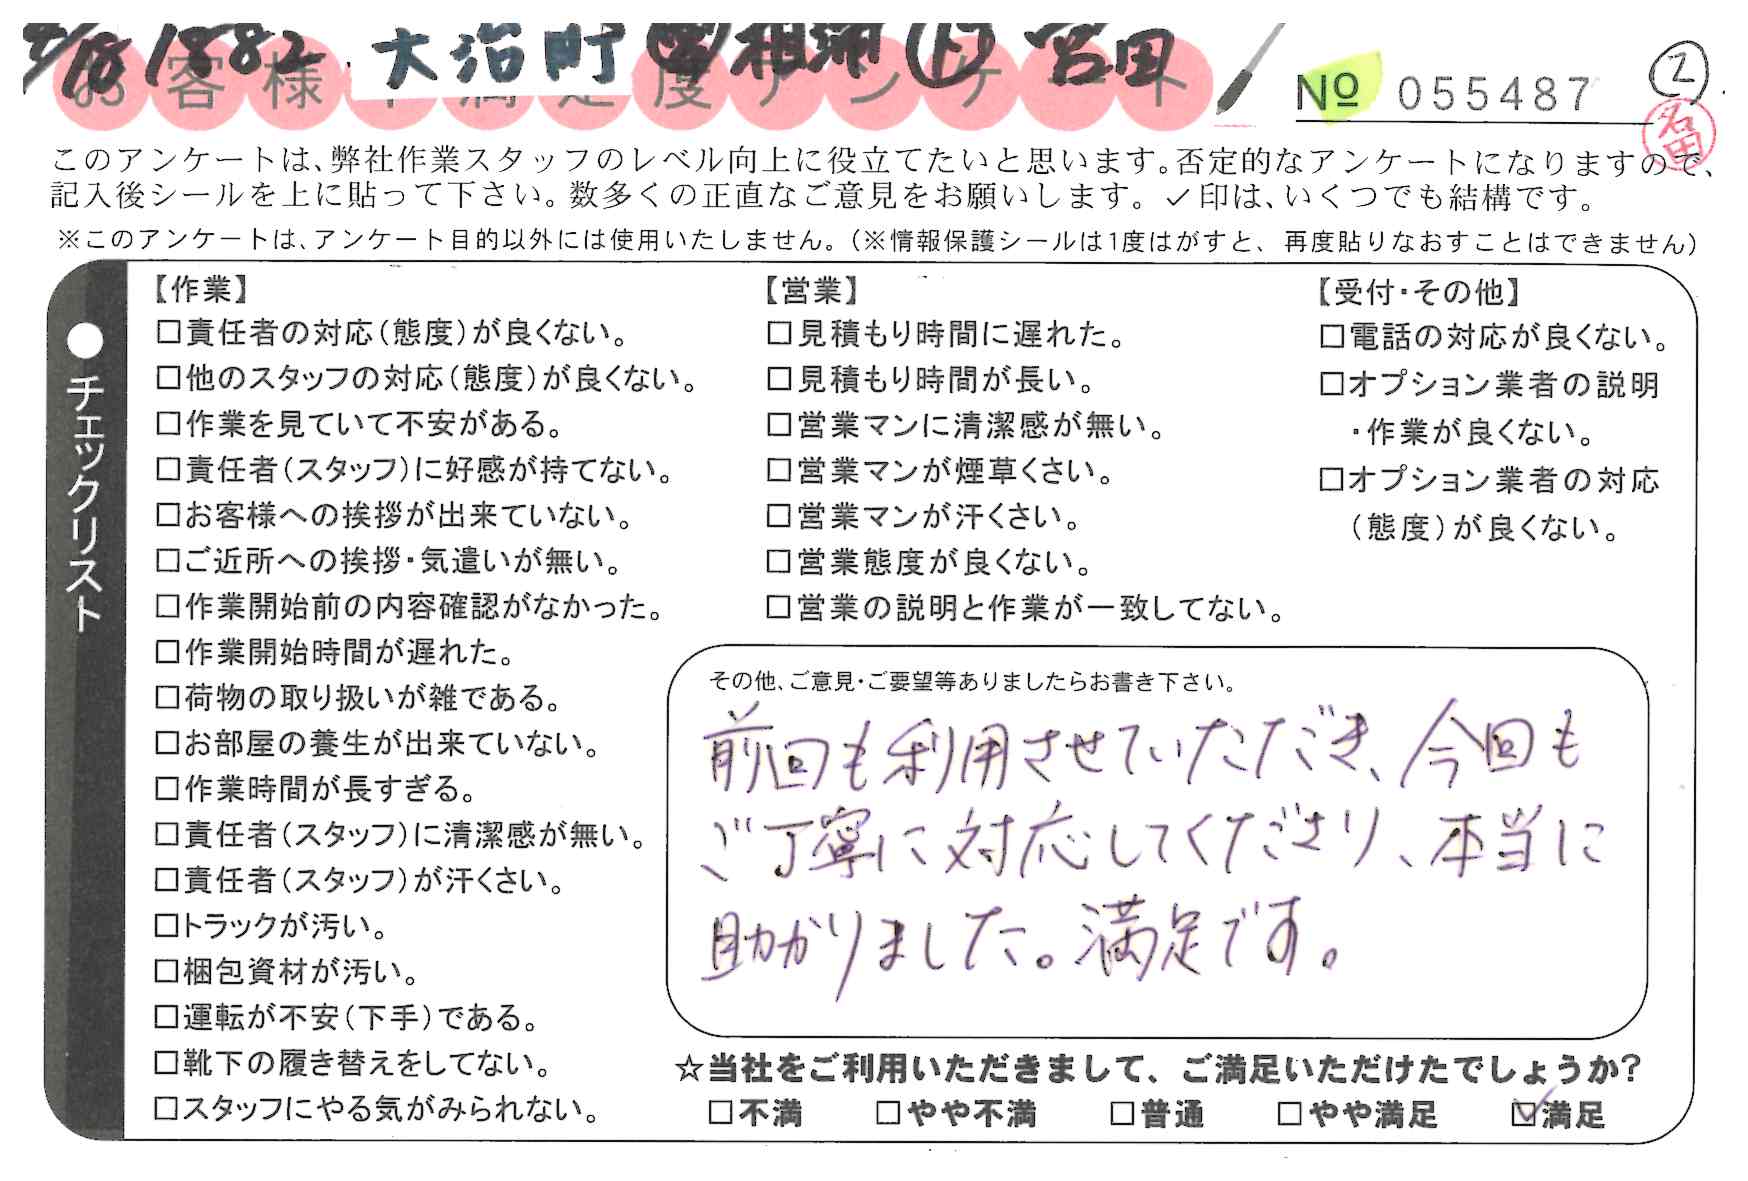 1882 大治町 宮田
お客様不満足度アンケート
No 055487 ②
名田
このアンケートは、弊社作業スタッフのレベル向上に役立てたいと思います。否定的なアンケートになりますので、
記入後シールを上に貼って下さい。数多くの正直なご意見をお願いします。✓印は、いくつでも結構です。
※このアンケートは、アンケート目的以外には使用いたしません。(※情報保護シールは1度はがすと、再度貼りなおすことはできません)
●チェックリスト
【作業】
□責任者の対応(態度)が良くない。
□他のスタッフの対応(態度)が良くない。
□作業を見ていて不安がある。
□責任者(スタッフ)に好感が持てない。
□お客様への挨拶が出来ていない。
□ご近所への挨拶・気遣いが無い。
□作業開始前の内容確認がなかった。
□作業開始時間が遅れた。
□荷物の取り扱いが雑である。
□お部屋の養生が出来ていない。
□作業時間が長すぎる。
□責任者(スタッフ)に清潔感が無い。
□責任者(スタッフ)が汗くさい。
□トラックが汚い。
□梱包資材が汚い。
□運転が不安(下手)である。
□靴下の履き替えをしてない。
□スタッフにやる気がみられない。
【営業】
□見積もり時間に遅れた。
□見積もり時間が長い。
□営業マンに清潔感が無い。
□営業マンが煙草くさい。
□営業マンが汗くさい。
□営業態度が良くない。
□営業の説明と作業が一致してない。
【受付・その他】
□電話の対応が良くない。
□オプション業者の説明
・作業が良くない。
□オプション業者の対応
(態度)が良くない。
その他、ご意見・ご要望等ありましたらお書き下さい。
前回も利用させていただき、今回も
ご丁寧に対応してくださり、本当に
助かりました。満足です。
☆当社をご利用いただきまして、ご満足いただけたでしょうか?
□不満 □やや不満 □普通 □やや満足 ☑満足